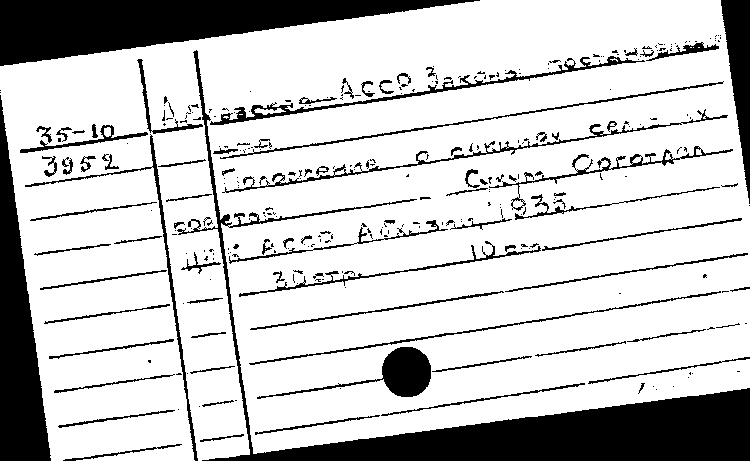 35-10
3952
Абхазская АССР. Законы, постановления
Положение о секциях сельских
советов. - Сухум, Орготдел
ЦИК АССР Абхазии, 1935.
30 стр. 10 см.